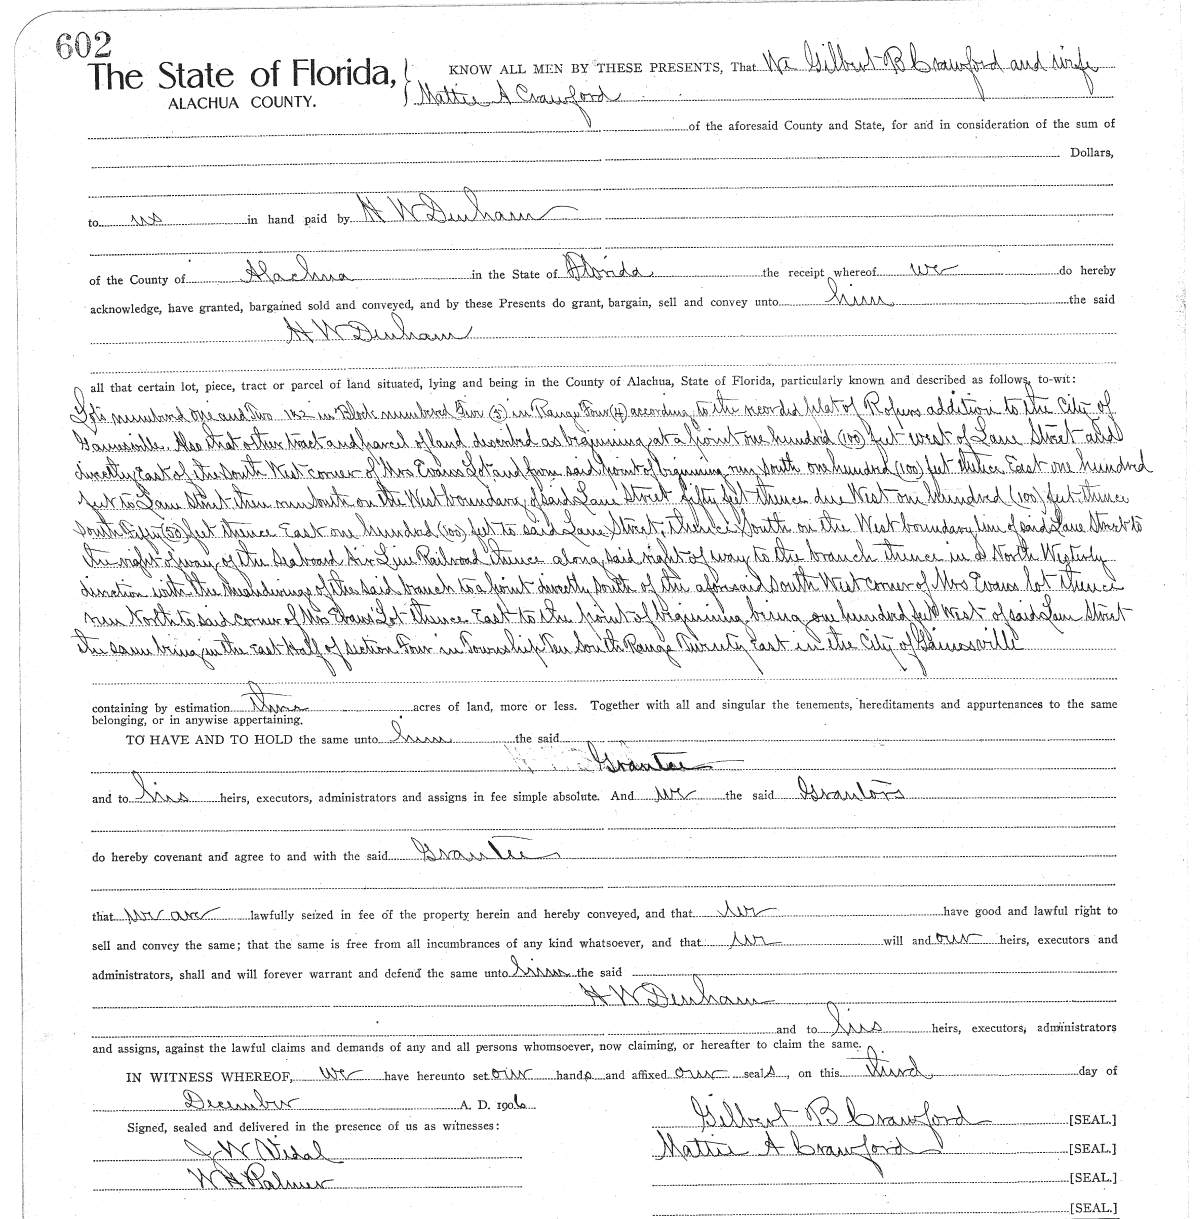 602
The State of Florida,
ALACHUA COUNTY.
KNOW ALL MEN BY THESE PRESENTS, That We Gilbert B Crawford and wife
Mattie A Crawford
of the aforesaid County and State, for and in consideration of the sum of
Dollars,
to us in hand paid by H W Denham
of the County of Alachua in the State of Florida the receipt whereof we do hereby
acknowledge, have granted, bargained sold and conveyed, and by these Presents do grant, bargain, sell and convey unto him the said
H W Denham
all that certain lot, piece, tract or parcel of land situated, lying and being in the County of Alachua, State of Florida, particularly known and described as follows, to-wit:
Lots numbered One and Two 1&2 in Block numbered Five (5) in Range Four (4) according to the recorded plat of Ropers addition to the City of
Gainesville. Also that other tract and parcel of land described as beginning at a point one hundred (100) feet west of Lane Street and
directly East of the South West corner of Mrs Evans Lot and from said point of beginning run South one hundred (100) feet thence East one hundred
feet to Lane Street then run South on the West boundary of said Lane Street fifty feet thence due West one hundred (100) feet thence
South Fifty (50) feet thence East one hundred (100) feet to said Lane Street, thence South on the West boundary line of said Lane Street to
the right of way of the Seaboard Air Line Railroad thence along said right of way to the branch thence in a North Westerly
direction with the meanderings of the said branch to a point directly south of the aforesaid South West corner of Mrs Evans lot thence
run North to said corner of Mrs Evans Lot thence East to the point of beginning being one hundred feet West of said Lane Street
the same being in the East Half of Section Four in Township Ten South Range Twenty East in the City of Gainesville
containing by estimation three acres of land, more or less. Together with all and singular the tenements, hereditaments and appurtenances to the same
belonging, or in anywise appertaining.
TO HAVE AND TO HOLD the same unto him the said
Grantee
and to his heirs, executors, administrators and assigns in fee simple absolute. And we the said Grantors
do hereby covenant and agree to and with the said Grantee
that we are lawfully seized in fee of the property herein and hereby conveyed, and that we have good and lawful right to
sell and convey the same; that the same is free from all incumbrances of any kind whatsoever, and that we will and our heirs, executors and
administrators, shall and will forever warrant and defend the same unto him the said
H W Denham
and to his heirs, executors, administrators
and assigns, against the lawful claims and demands of any and all persons whomsoever, now claiming, or hereafter to claim the same.
IN WITNESS WHEREOF, we have hereunto set our hands and affixed our seals, on this third day of
December A. D. 1906
Signed, sealed and delivered in the presence of us as witnesses:
Gilbert B Crawford [SEAL.]
J W Vidal
Mattie A Crawford [SEAL.]
W H Palmer
[SEAL.]
[SEAL.]